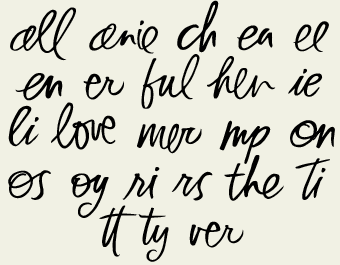 all anie ch ea ee
en er ful hen ie
li love mer mp on
os oy ri rs the Ti
tt ty ver